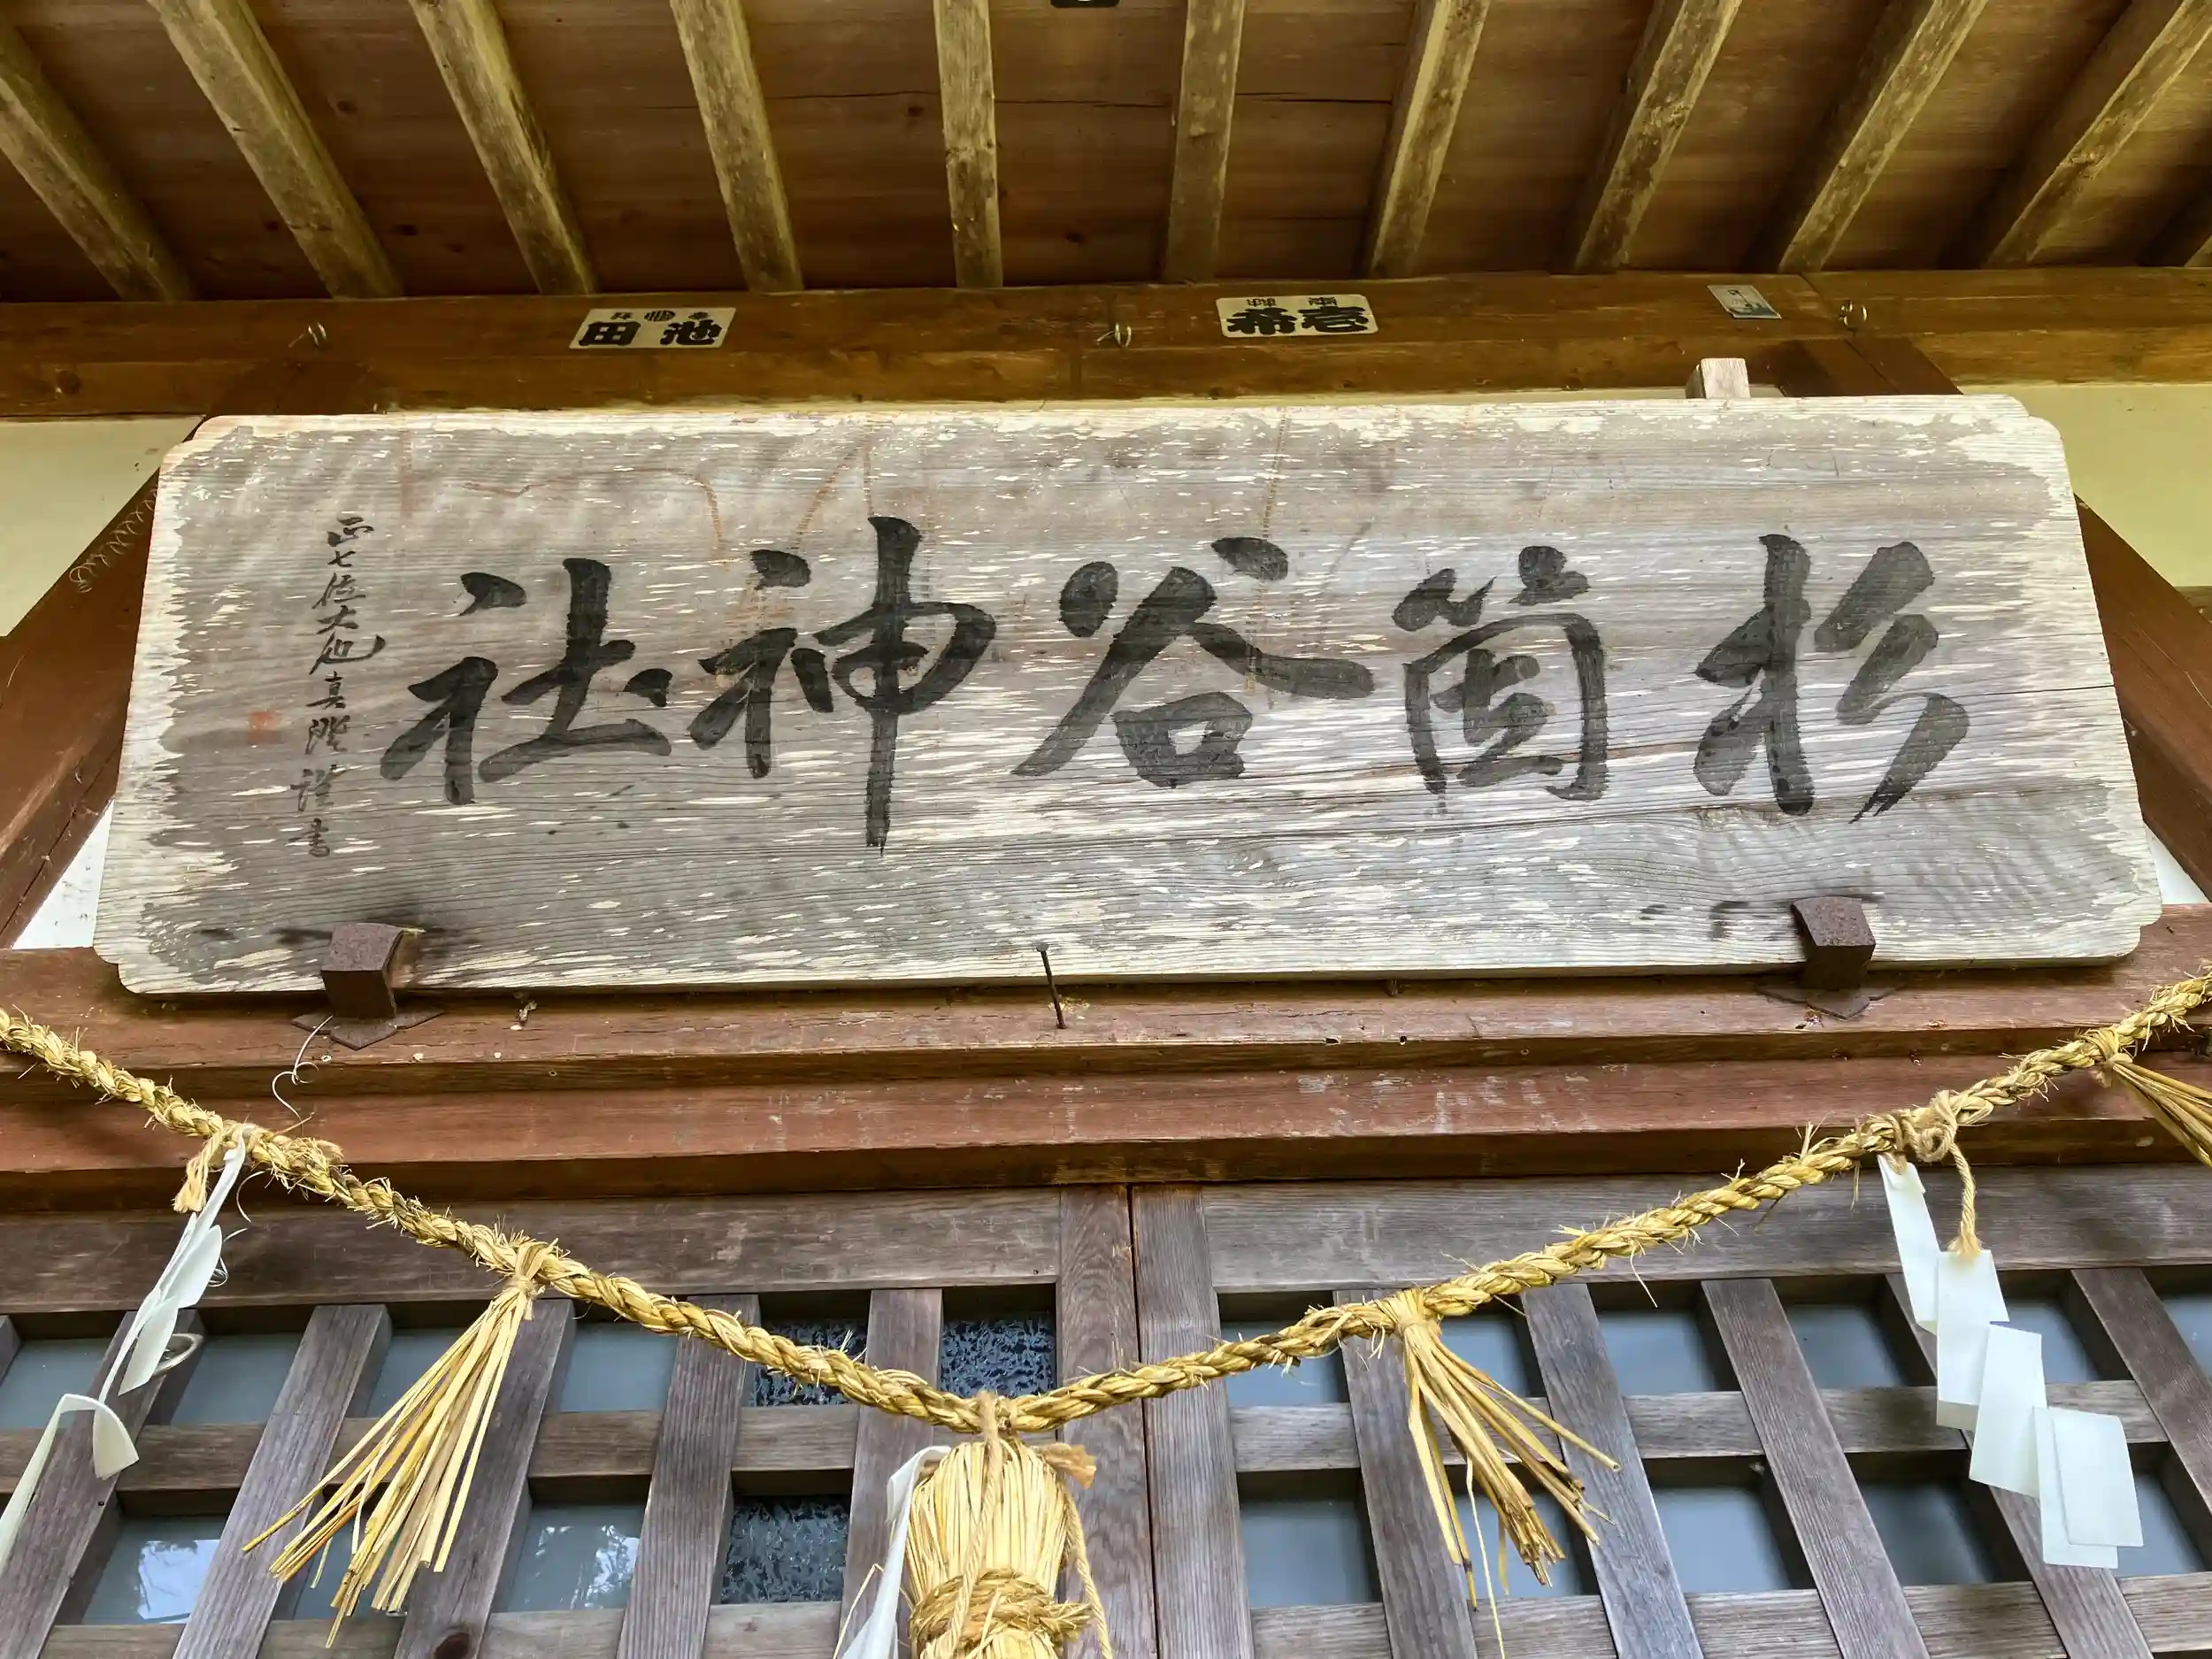 池田
壱希
杉箇谷神社
正七位大池真澄謹書